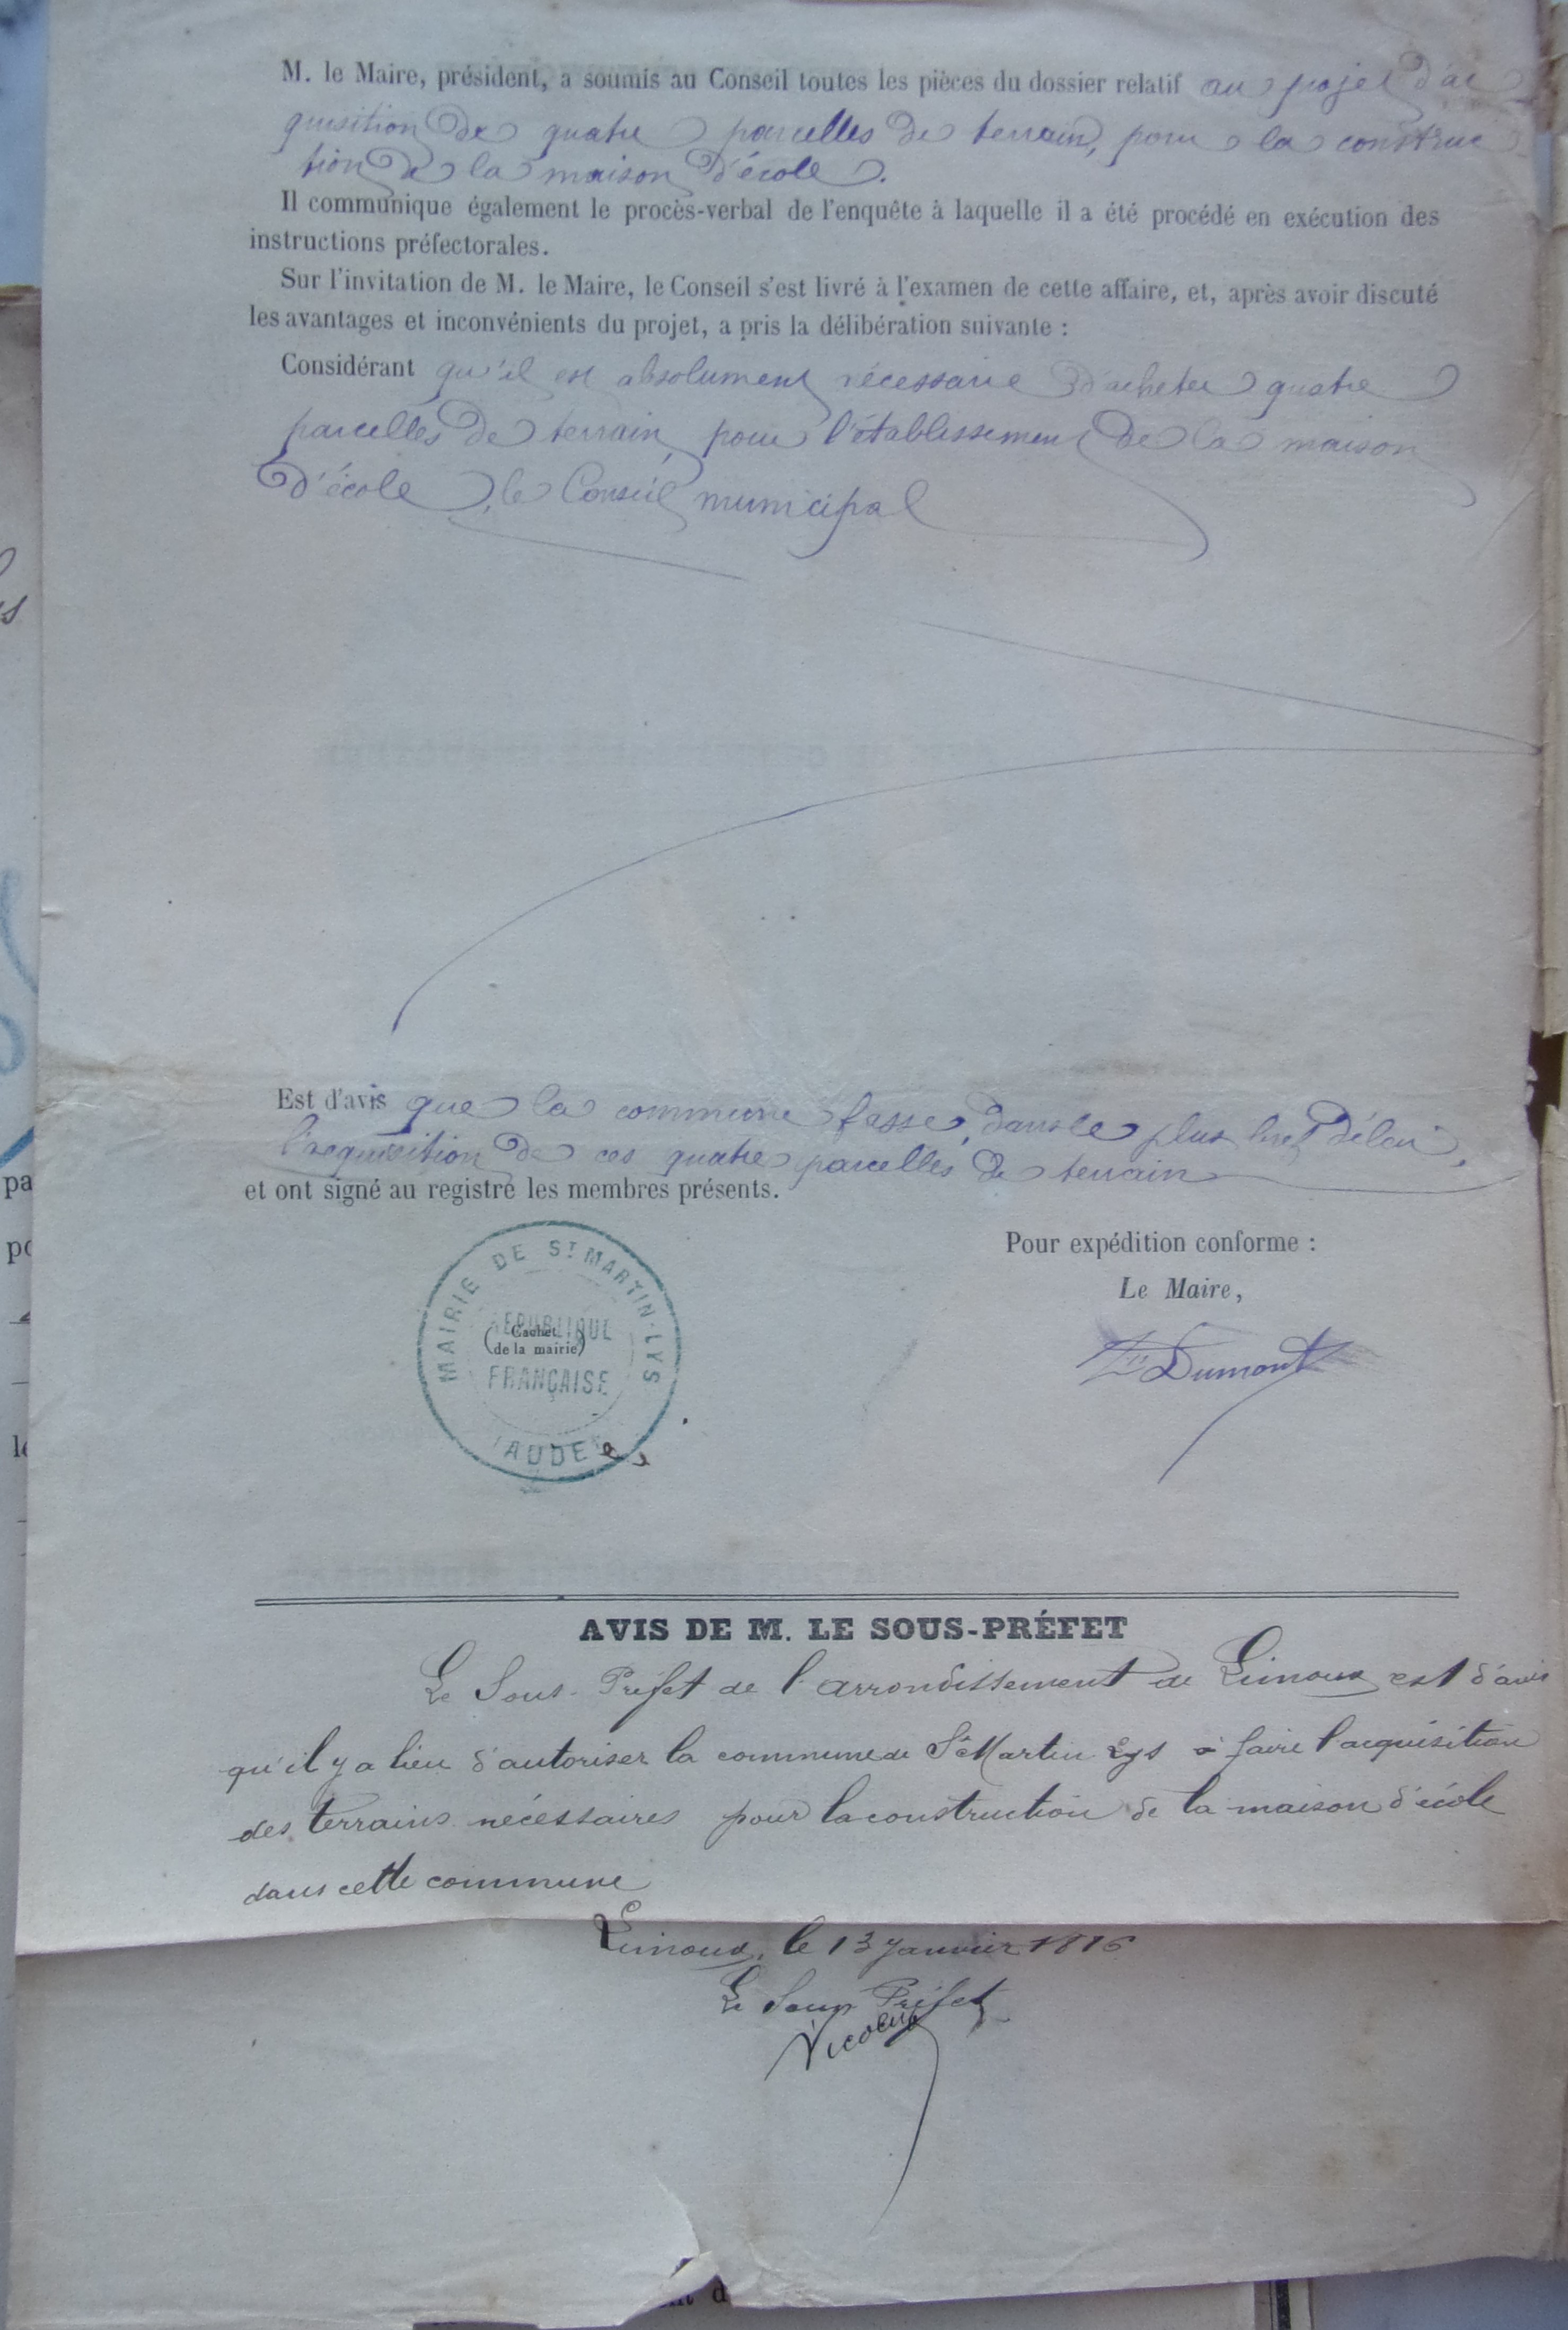 M. le Maire, président, a soumis au Conseil toutes les pièces du dossier relatif au projet d'ac
quisition de quatre parcelles de terrain, pour la construc
tion de la maison d'école.
Il communique également le procès-verbal de l'enquête à laquelle il a été procédé en exécution des
instructions préfectorales.
Sur l'invitation de M. le Maire, le Conseil s'est livré à l'examen de cette affaire, et, après avoir discuté
les avantages et inconvénients du projet, a pris la délibération suivante :
Considérant qu'il est absolument nécessaire d'acheter quatre
parcelles de terrain, pour l'établissement de la maison
d'école, le Conseil municipal
Est d'avis que la commune fasse, dans le plus bref délai,
l'acquisition de ces quatre parcelles de terrain
et ont signé au registre les membres présents.
Pour expédition conforme :
Le Maire,
Dumont
MAIRIE DE ST MARTIN-LYS
RÉPUBLIQUE
(Cachet
de la mairie)
FRANÇAISE
AUDE
AVIS DE M. LE SOUS-PRÉFET
Le Sous-Préfet de l'arrondissement de Limoux est d'avis
qu'il y a lieu d'autoriser la commune de St Martin Lys à faire l'acquisition
des terrains nécessaires pour la construction de la maison d'école
dans cette commune
Limoux, le 13 Janvier
Le Sous Préfet
pa
po
le